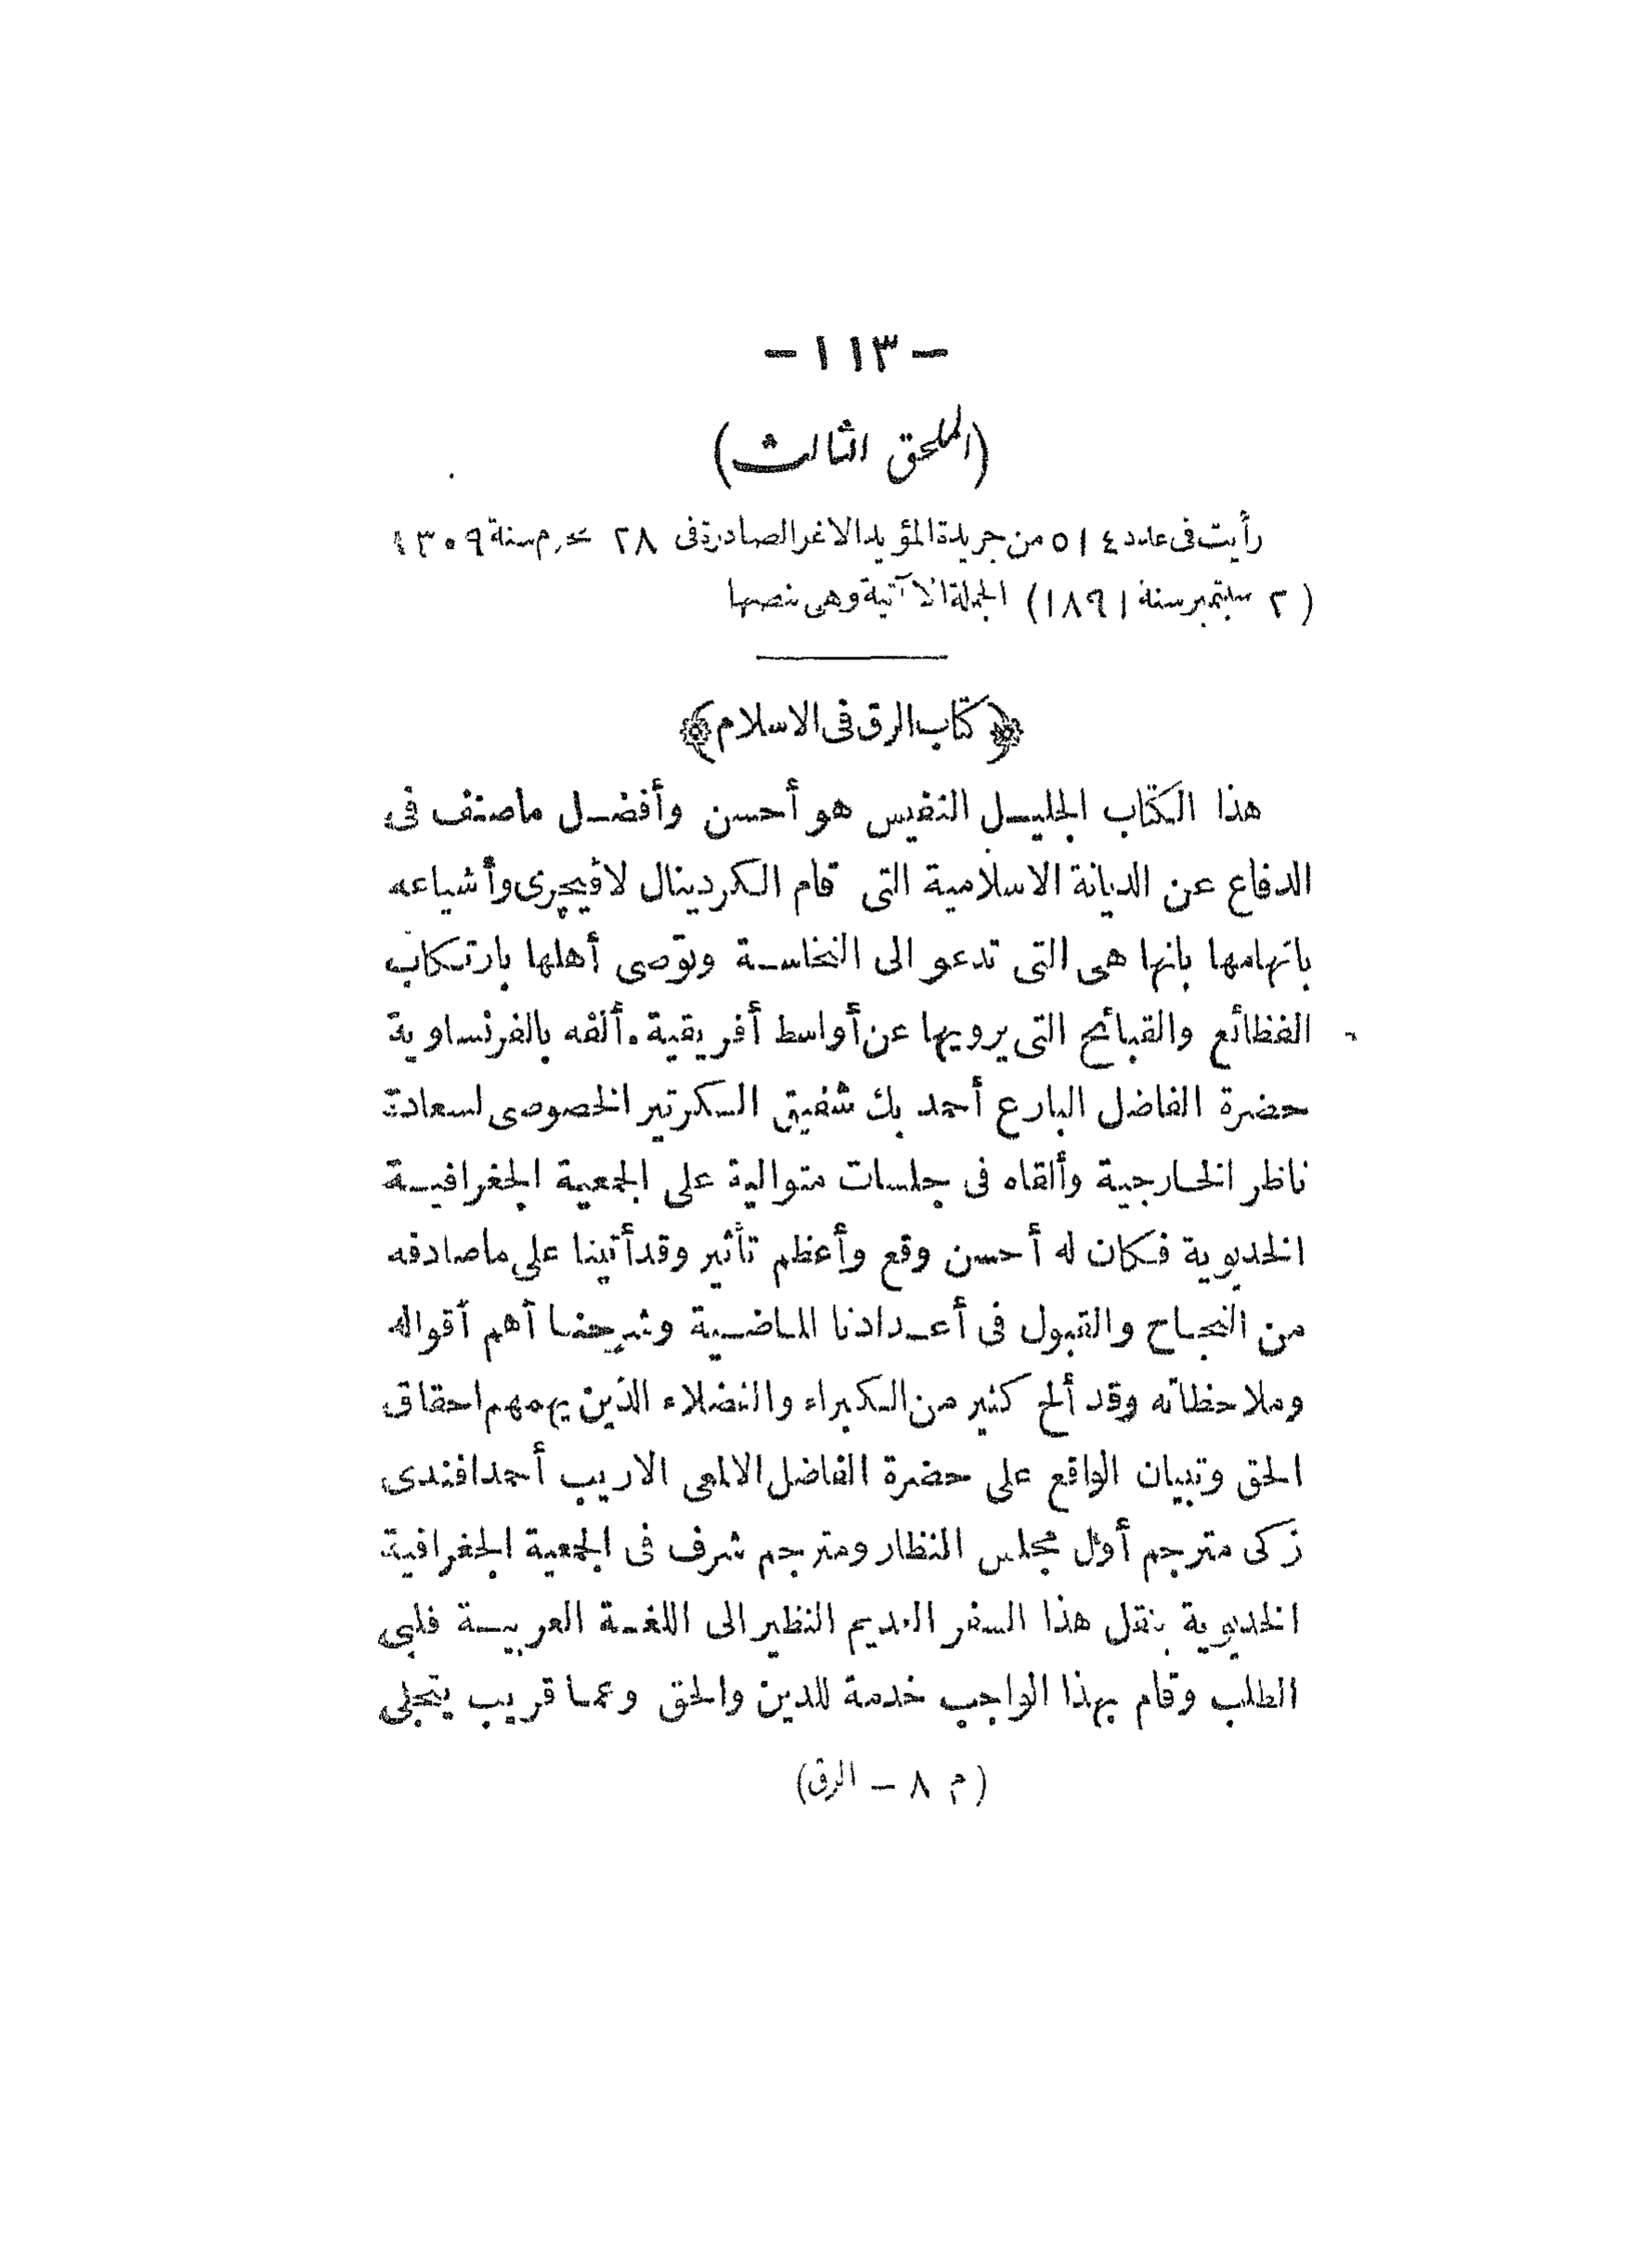 - ١١٣ -
(الملحق الثالث)
رأيت فى عدد ٥١٤ من جريدة المؤيد الاغر الصادرة فى ٢٨ محرم سنة ١٣٠٩
(٢ سبتمبر سنة ١٨٩١) الجملة الا آتية وهى بنصها
﴿كتاب الرق فى الاسلام﴾
هذا الكتاب الجليـل النفيس هو أحسن وأفضـل ماصنف فى
الدفاع عن الديانة الاسلامية التى قام الكردينال لاڤيچرى وأشياعه
باتهامها بانها هى التى تدعو الى النخاسـة وتوصى أهلها بارتكاب
الفظائع والقبائح التى يرويها عن أواسط أفريقية. ألفه بالفرنساوية
حضرة الفاضل البارع أحمد بك شفيق السكرتير الخصوصى لسعادة
ناظر الخارجية وألقاه فى جلسات متوالية على الجمعية الجغرافيـة
الخديوية فكان له أحسن وقع وأعظم تأثير وقد أتينا على ماصادفه
من النجاح والقبول فى أعـدادنا الماضـية وشرحنا أهم أقواله
وملاحظاته وقد ألح كثير من الكبراء والفضلاء الذين يهمهم احقاق
الحق وتبيان الواقع على حضرة الفاضل الالمعى الاريب أحمد افندى
زكى مترجم أول مجلس النظار ومترجم شرف فى الجمعية الجغرافية
الخديوية بنقل هذا السفر العديم النظير الى اللغـة العربيـة فلبى
الطلب وقام بهذا الواجب خدمة للدين والحق وعما قريب يتجلى
(م ٨ - الرق)